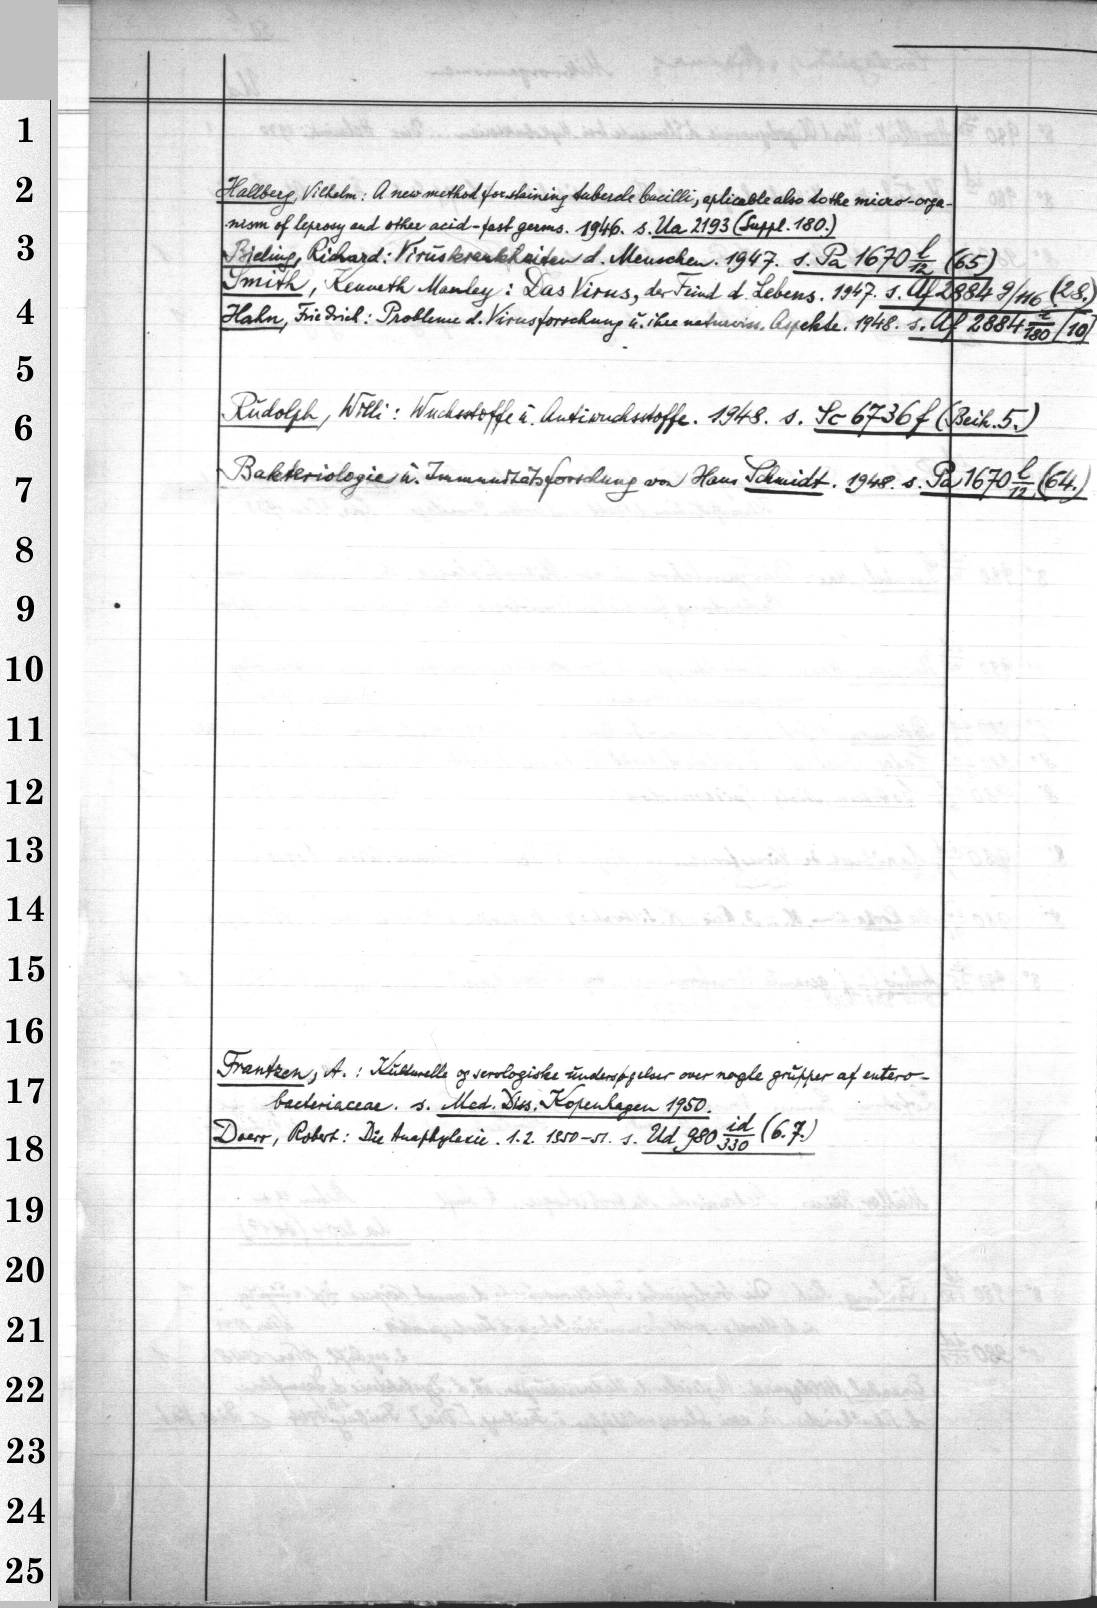 1
2
3
4
5
6
7
8
9
10
11
12
13
14
15
16
17
18
19
20
21
22
23
24
25
Hallberg, Vilhelm: A new method for staining tubercle bacilli, aplicable also to the micro-orga-
nism of leprosy and other acid-fast germs. 1946. s. Ua 2193 (Suppl. 180.)
Bieling, Richard: Viruskrankheiten d. Menschen. 1947. s. Pa 1670 l/12 (65)
Smith, Kenneth Manley: Das Virus, der Feind d. Lebens. 1947. s. Uf 2884 g/116 (28.)
Hahn, Friedrich: Probleme d. Virusforschung u. ihre naturwiss. Aspekte. 1948. s. Uf 2884 i/180 (10)
Rudolph, Willi: Wuchsstoffe u. Antiwuchsstoffe. 1948. s. Sc 6736 f (Beih. 5.)
Bakteriologie u. Immunitätsforschung von Hans Schmidt. 1948. s. Pa 1670 l/12 (64.)
Frantzen, A.: Kulturelle og serologiske undersøgelser over nogle grupper af entero-
bacteriaceae. s. Med. Diss. Kopenhagen 1950.
Doerr, Robert: Die Anaphylaxie. 1.2. 1950-51. s. Ud 980 id/330 (6.7.)